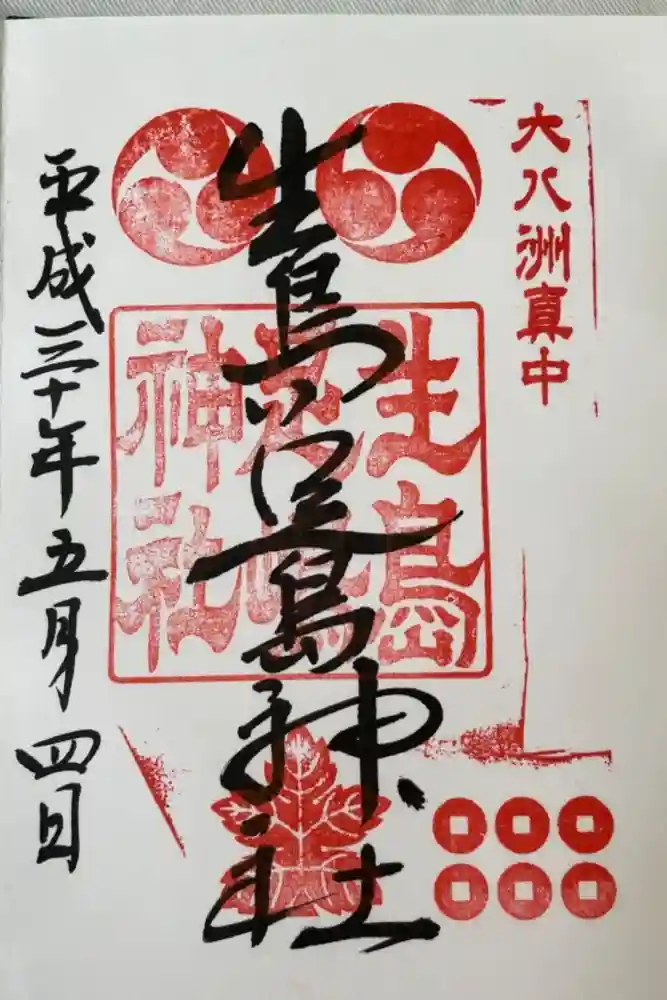 大八洲真中
生島足島神社
生島
神社
平成三十年五月四日